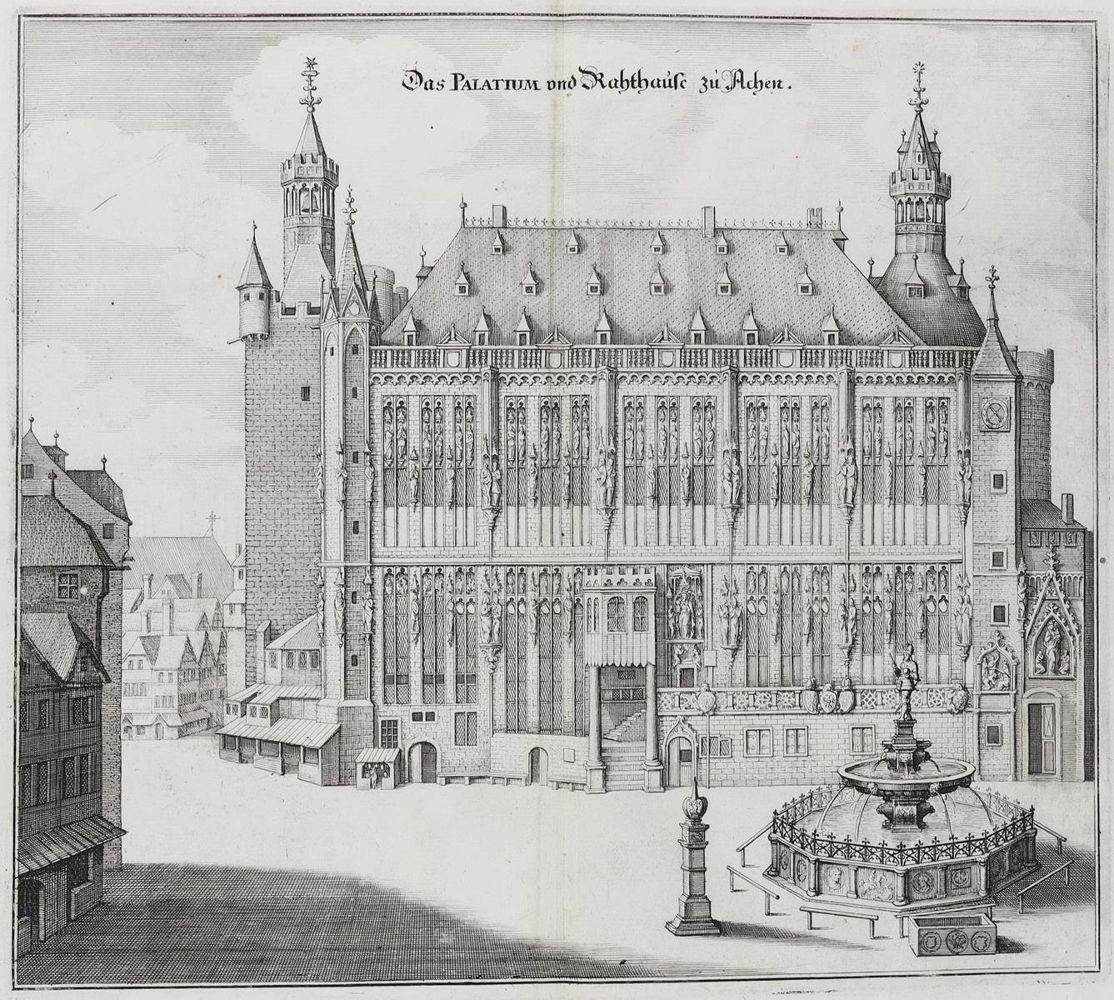 Das PALATIUM vnd Rahthauſe zu Achen.